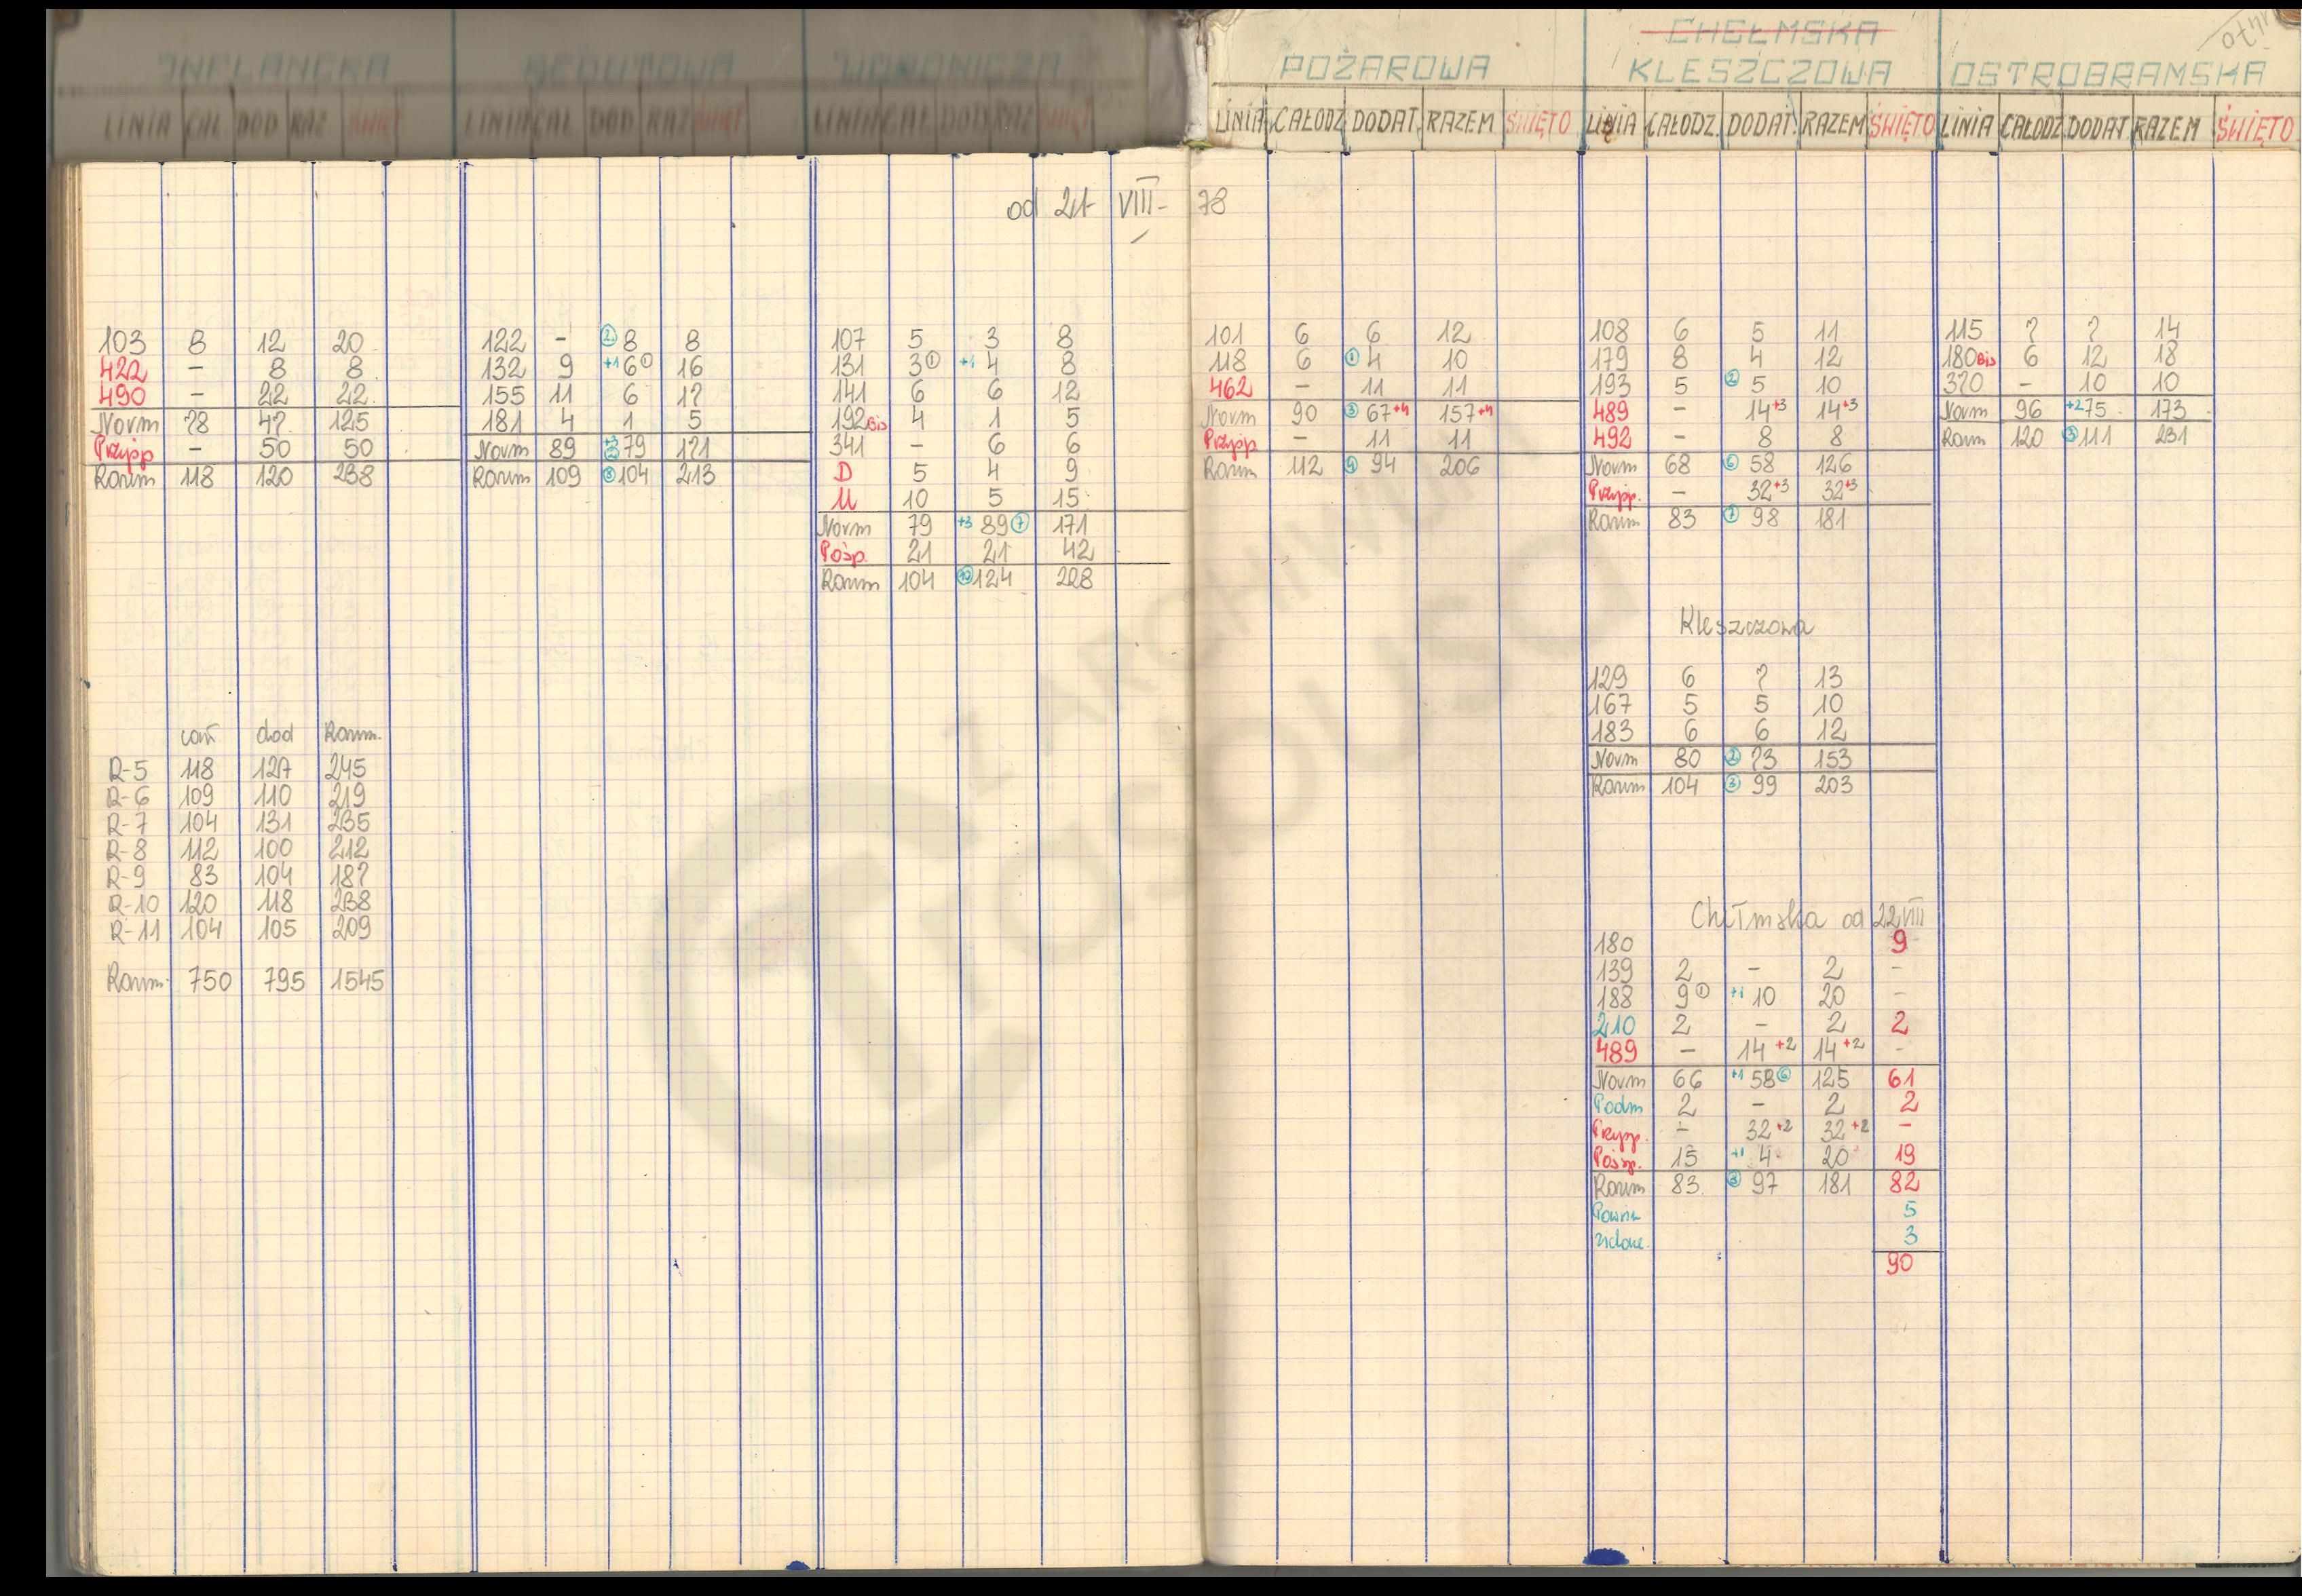 INFLANCKA
LINIA CAŁ DOD RAZ ŚWIĘT
REDUTOWA
LINIA CAŁ DOD RAZ ŚWIĘT
WORONICZA
LINIA CAŁ DOD RAZ ŚWIĘT
POŻAROWA
LINIA CAŁODZ. DODAT. RAZEM ŚWIĘTO
CHEŁMSKA
KLESZCZOWA
LINIA CAŁODZ. DODAT. RAZEM ŚWIĘTO
OSTROBRAMSKA
LINIA CAŁODZ. DODAT. RAZEM ŚWIĘTO
od 21 VIII - 78
103 8 12 20
422 - 8 8
490 - 22 22
Norm 78 47 125
Przysp - 50 50
Razem 118 120 238
cał dod Razem
R-5 118 127 245
R-6 109 110 219
R-7 104 131 235
R-8 112 100 212
R-9 83 104 187
R-10 120 118 238
R-11 104 105 209
Razem 750 795 1545
122 - ② 8 8
132 9 +1 6 ① 16
155 11 6 17
181 4 1 5
Norm 89 79 171
Razem 109 ⑧ 104 213
107 5 3 8
131 3 ① +1 4 8
141 6 6 12
192 Bis 4 1 5
341 - 6 6
D 5 4 9
U 10 5 15
Norm 79 +3 89 ⑦ 171
Pośp. 21 21 42
Razem 104 ⑩ 124 228
101 6 6 12
118 6 ① 4 10
462 - 11 11
Norm 90 ③ 67 +4 157 +4
Przysp - 11 11
Razem 112 ④ 94 206
108 6 5 11
179 8 4 12
193 5 ② 5 10
489 - 14 +3 14 +3
492 - 8 8
Norm 68 ⑥ 58 126
Przysp. - 32 +3 32 +3
Razem 83 ⑦ 98 181
Kleszczowa
129 6 7 13
167 5 5 10
183 6 6 12
Norm 80 ② 73 153
Razem 104 ③ 99 203
Chełmska od 22 VIII
180 9
139 2 - 2 -
188 9 ① +1 10 20 -
210 2 - 2 2
489 - 14 +2 14 +2 -
Norm 66 +1 58 ⑥ 125 61
Podm 2 - 2 2
Przysp. - 32 +2 32 +2 -
Pośp. 15 +1 4 20 19
Razem 83 ⑧ 97 181 82
5
3
90
115 7 7 14
180 Bis 6 12 18
320 - 10 10
Norm 96 +2 75 173
Razem 120 ③ 111 231
Z ARCHIWUM